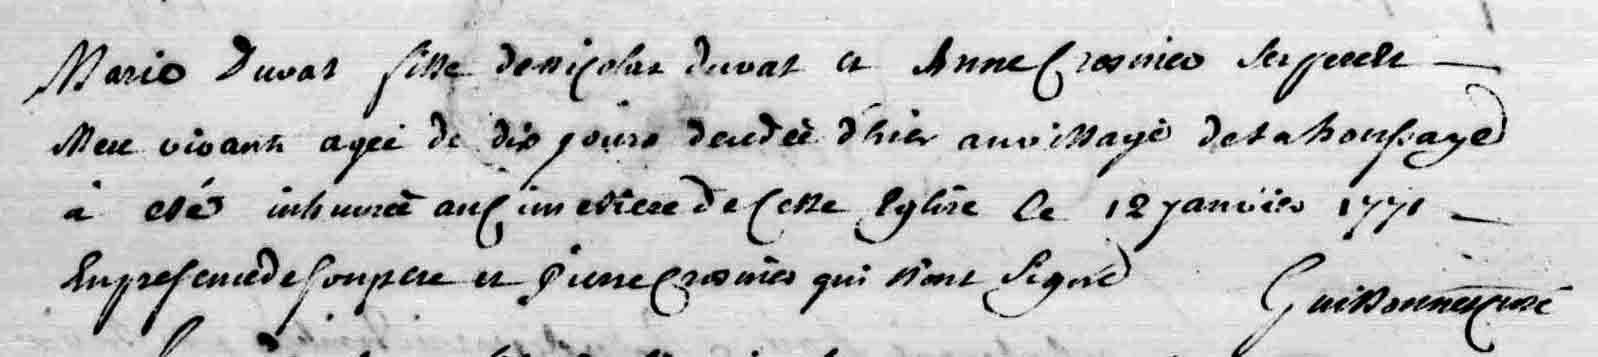 Marie Duval fille de nicolas duval et Anne Crosnier Ses pere et
Mere vivants agee de dix jours decedée d'hier au village de la houssaye
à eté inhumée au Cimetiere de Cette Eglise le 12 janvier 1771
En presence de Son pere et pierre Crosnier qui n'ont Signé
curé